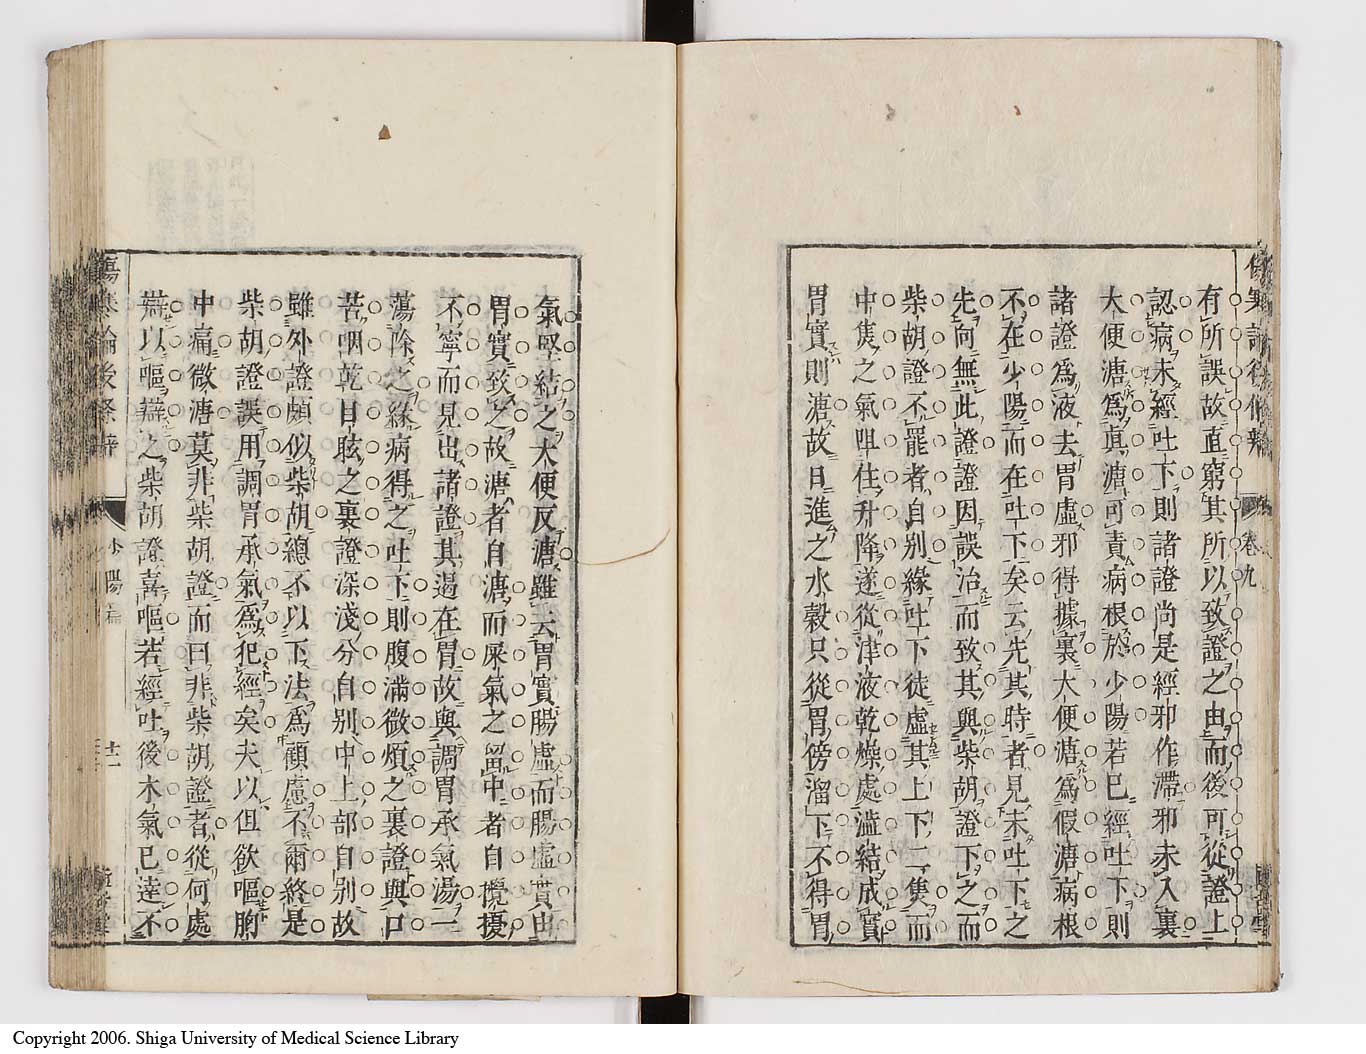 有所誤故直窮其所以致證之由而後可從證上
認病未經吐下則諸證尚是經邪作滯邪未入裏
大便溏爲眞溏可責病根於少陽若已經吐下則
諸證爲液去胃虛邪得據裏大便溏爲假溏病根
不在少陽而在吐下矣云先其時者見未吐下之
先向無此證證因誤治而致其與柴胡證下之而
柴胡證不罷者自別緣吐下徒虛其上下二焦而
中焦之氣阻住升降遂從津液乾燥處溢結成實
胃實則溏故日進之水穀只從胃傍溜下不得胃
卷九
氣堅結之大便反溏雖云胃實腸虛而腸虛實由
胃實致之故溏者自溏而屎氣之留中者自攪擾
不寧而見出諸證其遏在胃故與調胃承氣湯一
蕩除之緣病得之吐下則腹滿微煩之裏證與口
苦咽乾目眩之裏證深淺分自別中上部自別故
雖外證頗似柴胡總不以下法爲顧慮不爾終是
柴胡證誤用調胃承氣爲犯經矣夫以但欲嘔胸
中痛微溏莫非柴胡證而曰非柴胡證者從何處
辯以嘔辯之柴胡證喜嘔若經吐後木氣已達不
傷寒論後條辨
少陽篇
Copyright 2006. Shiga University of Medical Science Library